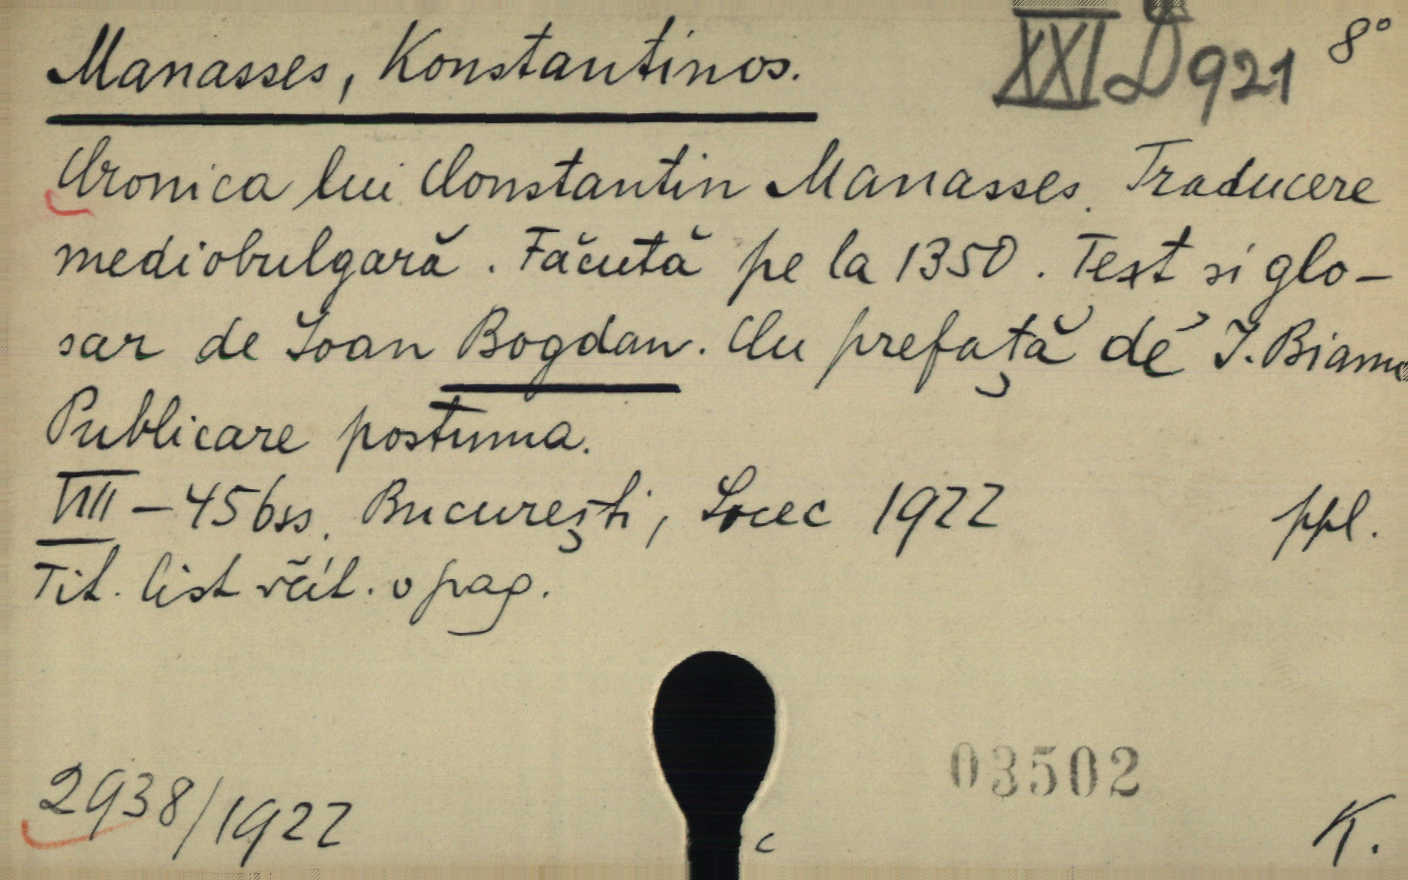 Manasses, Konstantinos.
XXI D 921
8°
Cronica lui Constantin Manasses. Traducere
mediobulgară. Făcută pe la 1350. Text si glo-
sar de Ioan Bogdan. Cu prefață de I. Bianu
Publicare postuma.
VIII - 456 ss. București, Socec 1922 ppl.
Tit. list včít. v pag.
03502
2938/1922
c
K.